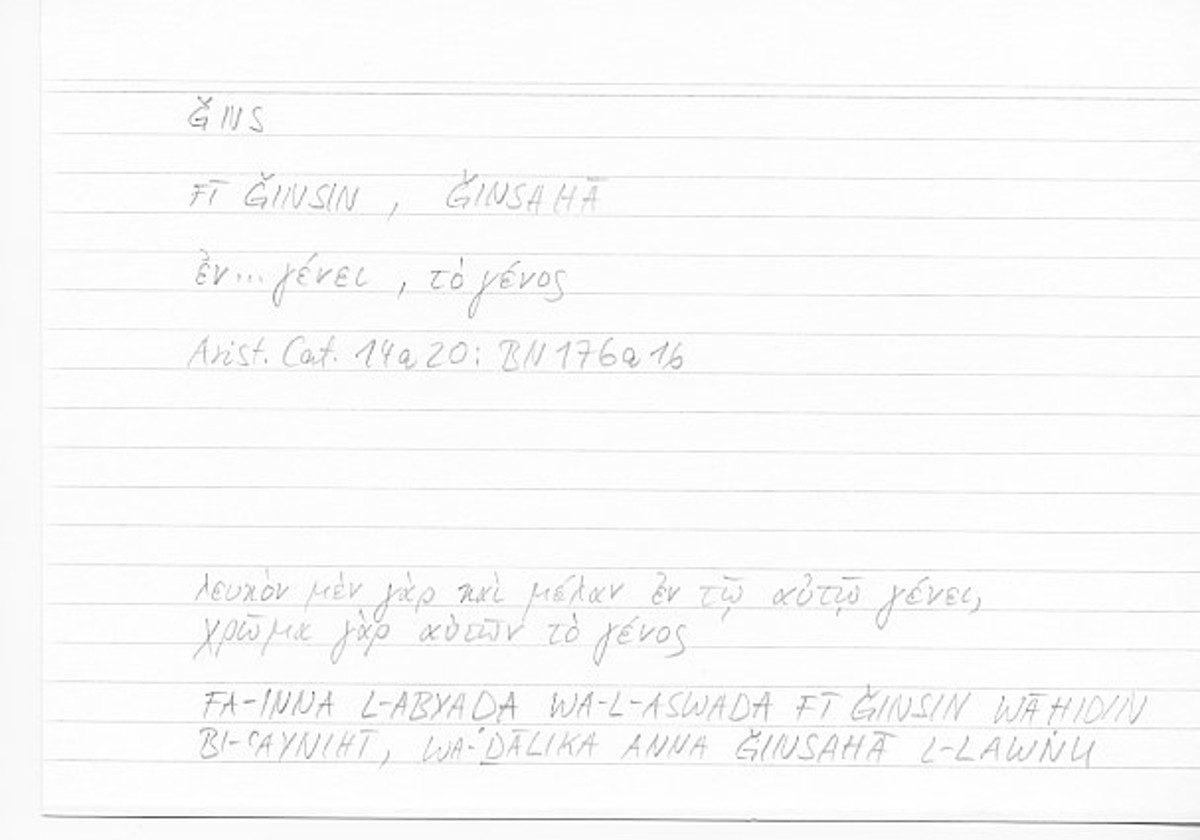 ǦNS
FĪ ǦINSIN , ǦINSAHĀ
ἐν... γένει , τὸ γένος
Arist. Cat. 14a20: BN176a16
λευκὸν μὲν γὰρ καὶ μέλαν ἐν τῷ αὐτῷ γένει,
χρῶμα γὰρ αὐτῶν τὸ γένος
FA-INNA L-ABYAḌA WA-L-ASWADA FĪ ǦINSIN WĀḤIDIN
BI-ʿAYNIHĪ, WA-ḎĀLIKA ANNA ǦINSAHĀ L-LAWNU